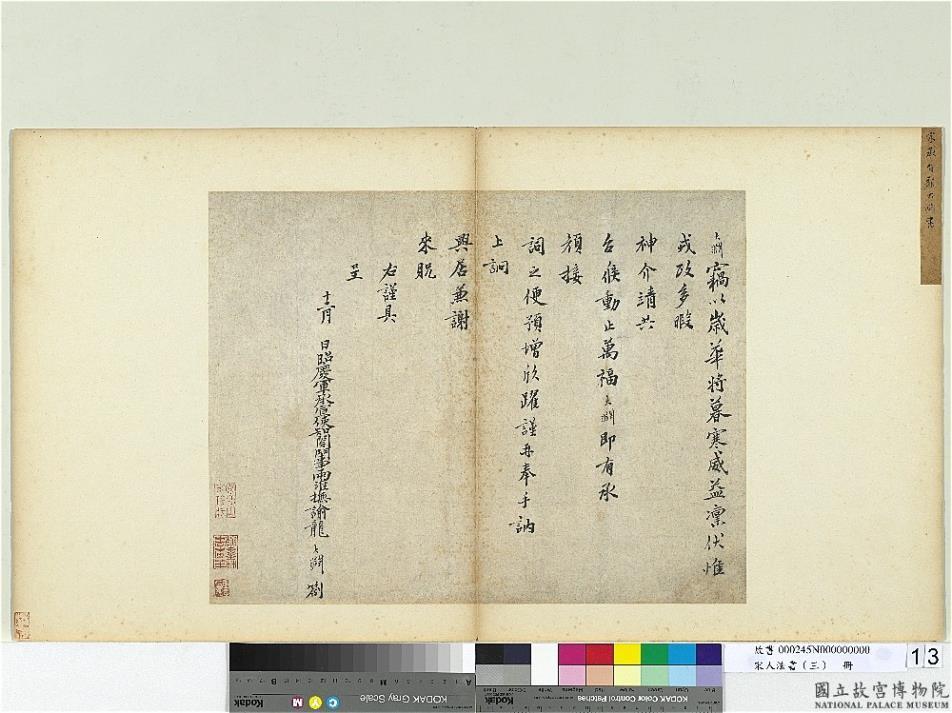 大淵竊以歲華將暮寒威益凜伏惟
戎政多暇
神介請共
台候動止萬福大淵即有承
頎接
詞之便預增欣躍謹再奉手訥
上詗
興居兼謝
來貺
右謹具
呈
十二月 日昭慶軍承宣使知閤門事兩淮撫諭龍大淵劄
故書 000245N000000000
宋人法書(三) 冊
13
KODAK Gray Scale
KODAK Color Control Patches
Kodak
C Y M
國立故宮博物院
NATIONAL PALACE MUSEUM